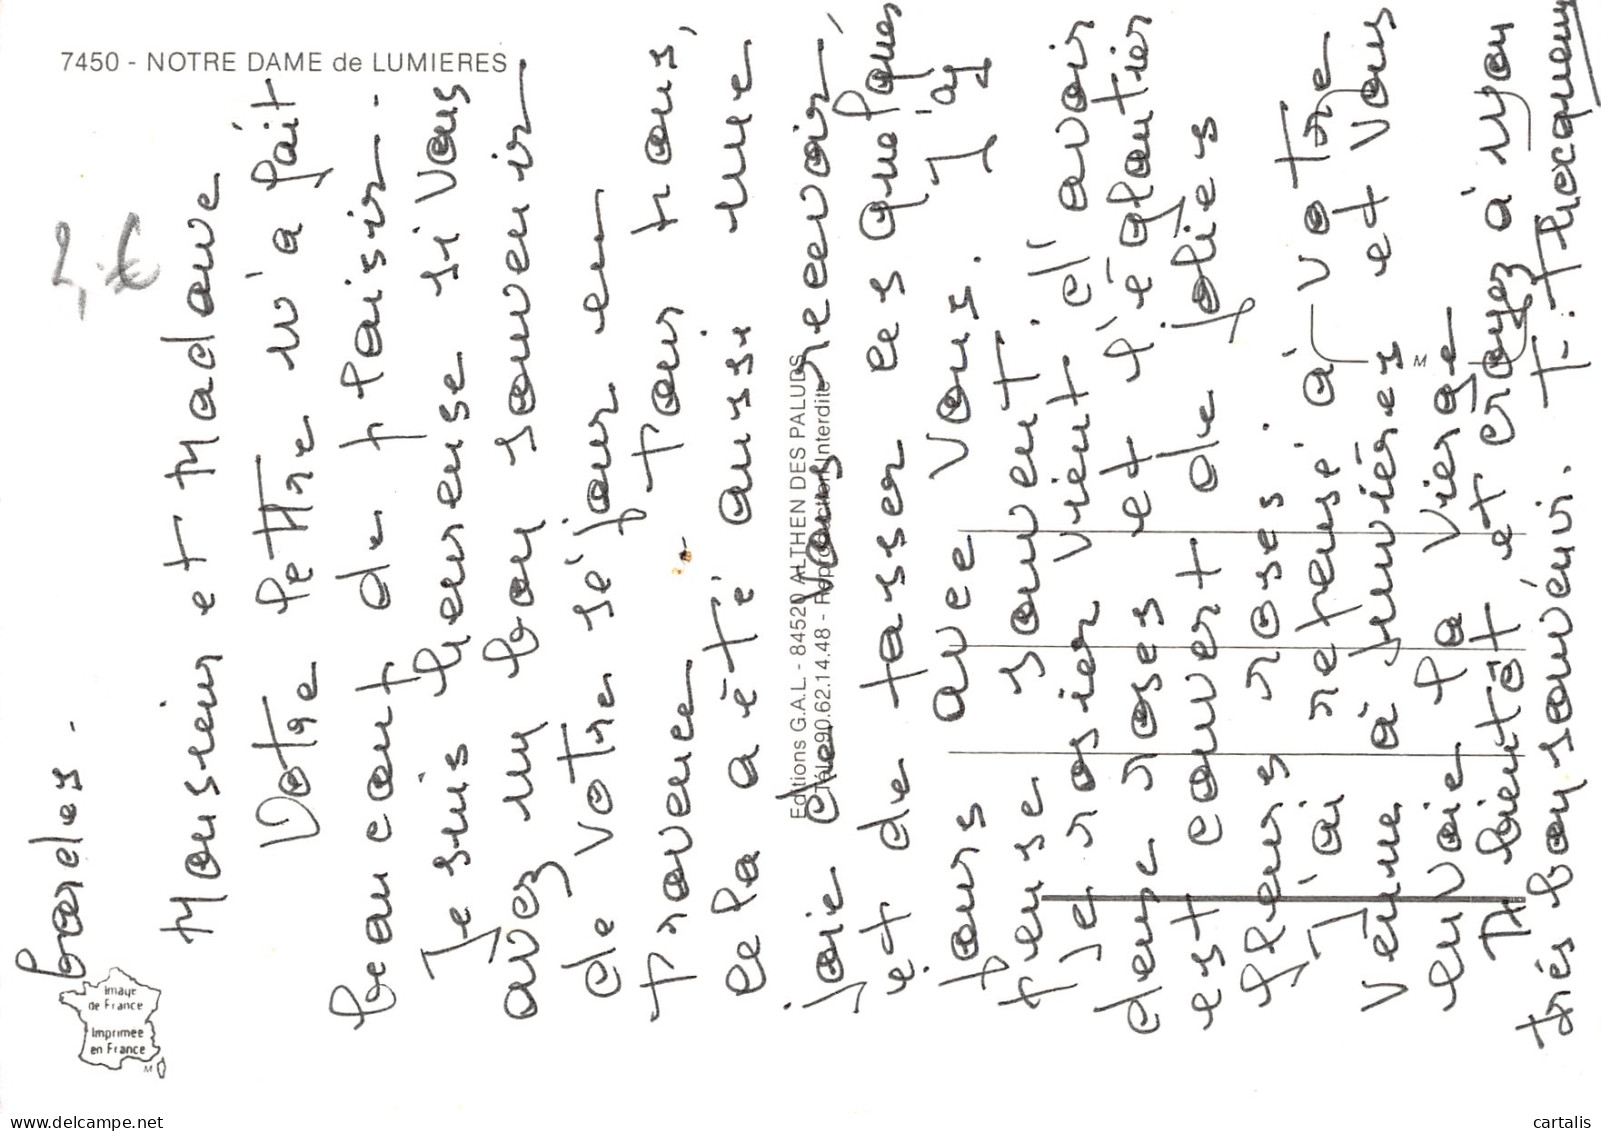 7450 - NOTRE DAME de LUMIERES
2,-€
Gordes.
Monsieur et Madame
Votre lettre m'a fait
beaucoup de plaisir.
Je suis heureuse si vous
avez un bon souvenir
de votre séjour en
provence. Pour nous,
cela a été aussi une
joie de vous recevoir
et de passer ces quelques
jours avec vous. J'ay
pense souvent. d'avoir
le rosier vient
deux roses et l'églantier
est couvert de jolies
fleurs roses.
J'ai repensé à votre
venue à lumières et vous
envoie la Vierge
A bientôt et croyez à mon
très bon souvenir. T. Thecqueux
Editions G.A.L. - 84520 ALTHEN DES PALUDS
Tél. 90.62.14.48 - Reproduction Interdite
Image
de France
Imprimee
en France
M
M
delcampe.net
cartalis